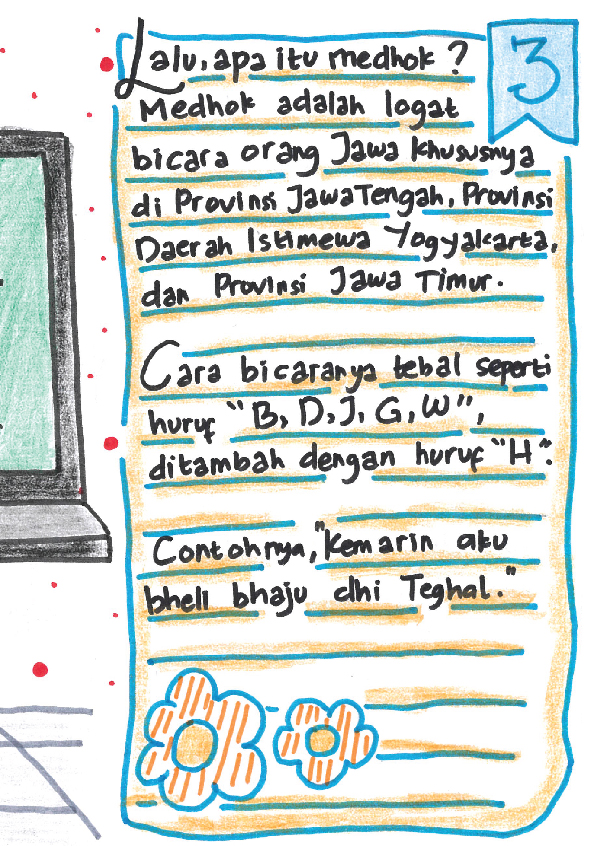 3
Lalu, apa itu medhok?
Medhok adalah logat
bicara orang Jawa khususnya
di Provinsi Jawa Tengah, Provinsi
Daerah Istimewa Yogyakarta,
dan Provinsi Jawa Timur.
Cara bicaranya tebal seperti
huruf "B, D, J, G, W",
ditambah dengan huruf "H".
Contohnya, "Kemarin aku
bheli bhaju dhi Teghal."